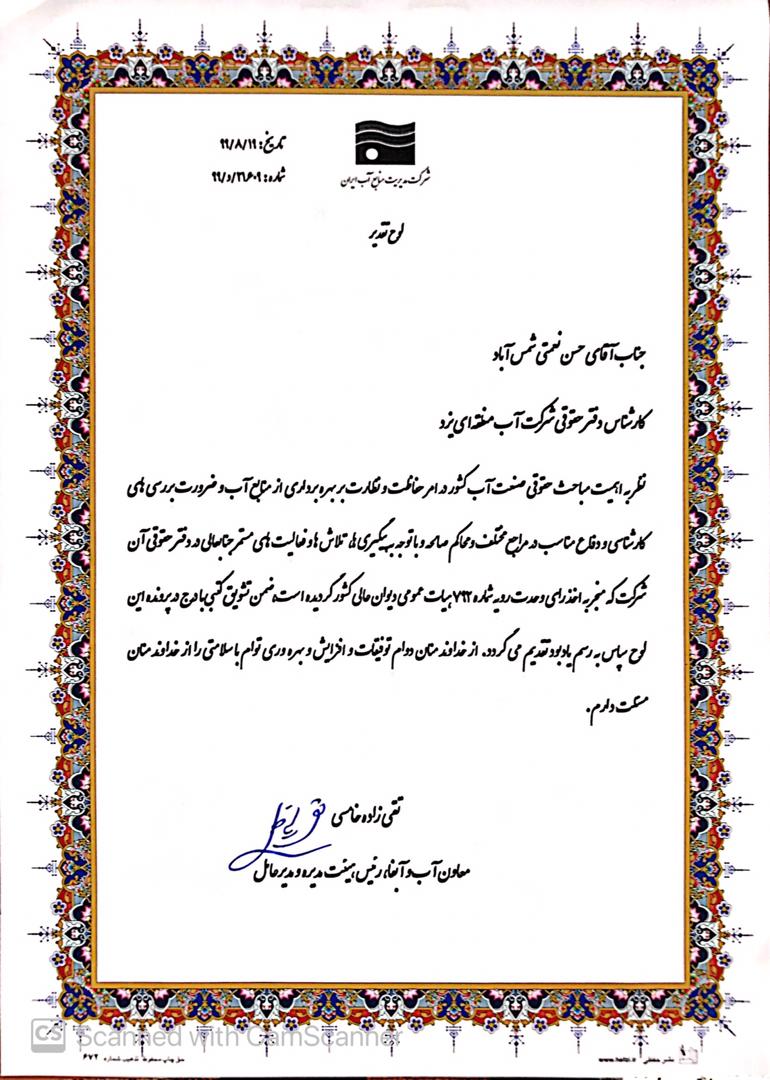 تاریخ: ۹۹/۸/۱۹
شماره: ۹۹/د/۲۱۶۰۹
شرکت مدیریت منابع آب ایران
لوح تقدیر
جناب آقای حسن نعمتی شمس آباد
کارشناس دفتر حقوقی شرکت آب منطقه ای یزد
نظر به اهمیت مباحث حقوقی صنعت آب کشور در امر حفاظت و نظارت بر بهره برداری از منابع آب و ضرورت بررسی های
کارشناسی و دفاع مناسب در مراجع مختلف و محاکم صالحه و با توجه به پیگیری ها، تلاش ها و فعالیت های مستمر جنابعالی در دفتر حقوقی آن
شرکت که منجر به اخذ رای وحدت رویه شماره ۷۹۲ هیات عمومی دیوان عالی کشور گردیده است، ضمن تشویق کتبی با درج در پرونده این
لوح سپاس به رسم یادبود تقدیم می گردد. از خداوند منان دوام توفیقات و افزایش و بهره وری توام با سلامتی را از خداوند منان
مسئلت دارم.
تقی زاده خامسی
معاون آب و آبفا، رئیس هیئت مدیره و مدیرعامل
CS Scanned with CamScanner
حق چاپ محفوظ تذهیب شماره ۶۷۲